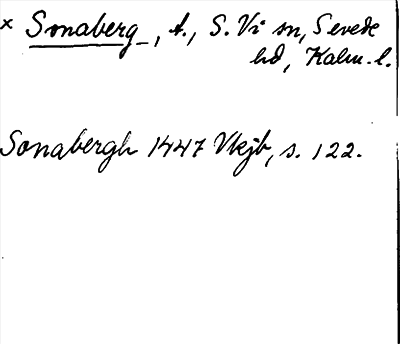 × Sonaberg, t., S. Vi sn, Sevede
hd, Kalm. l.
Sonabergh 1447 Vkjb, s. 122.